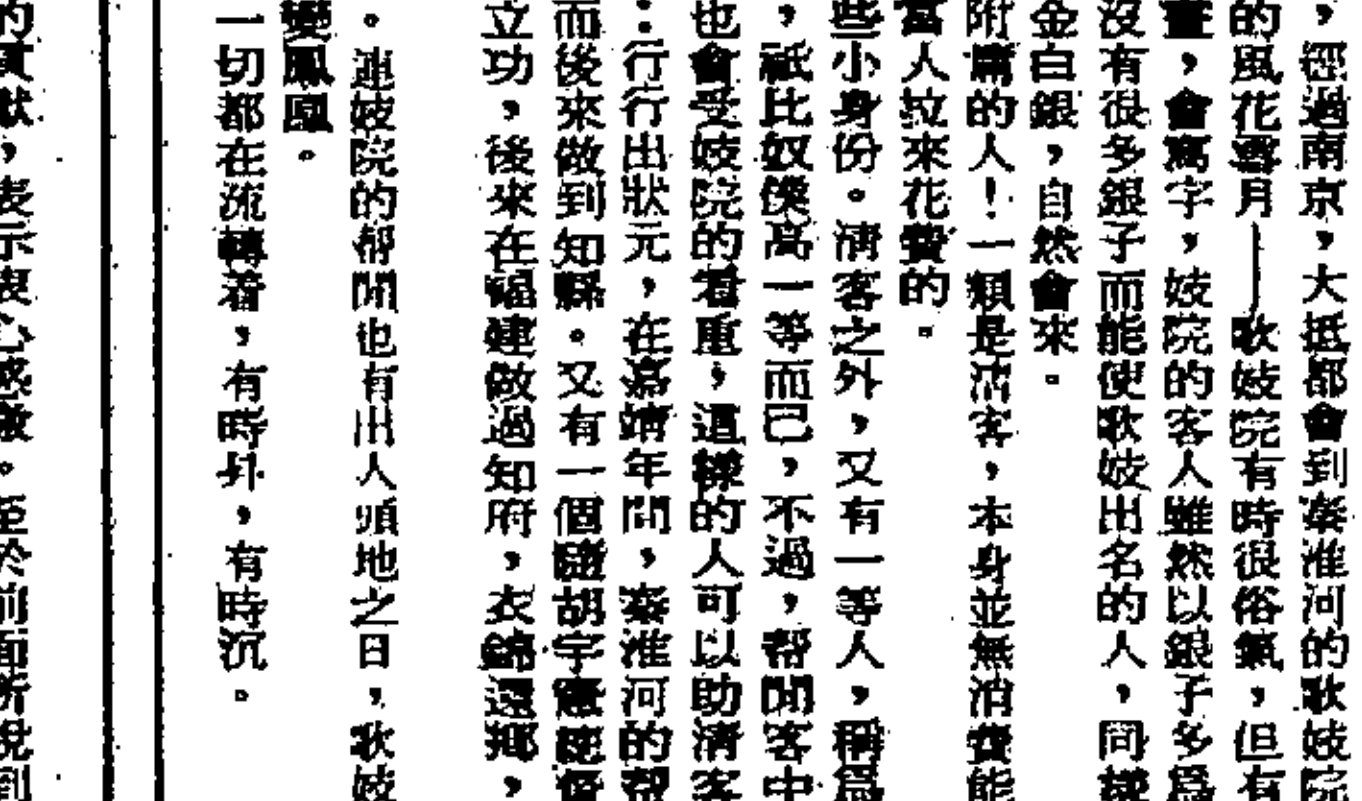 ，經過南京，大抵都會到秦淮河的歌妓院
的風花雪月——歌妓院有時很俗氣，但有
畫，會寫字，妓院的客人雖然以銀子多爲
沒有很多銀子而能使歌妓出名的人，同樣
金白銀，自然會來。
附庸的人！一類是清客，本身並無消費能
當人拉來花費的。
些小身份。清客之外，又有一等人，稱爲
，祇比奴僕高一等而已，不過，幫閒客中
也會受妓院的看重，這樣的人可以助清客
：行行出狀元，在嘉靖年間，秦淮河的幫
而後來做到知縣。又有一個隨胡宗憲總督
立功，後來在福建做過知府，衣錦還鄉，
。連妓院的帮閒也有出人頭地之日，歌妓
變鳳凰。
一切都在流轉着，有時升，有時沉。
的貢獻，表示衷心感激。至於前面所說到